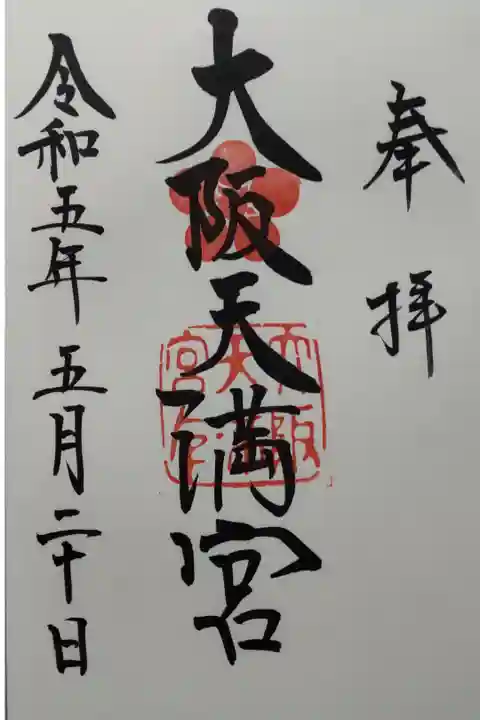 奉拝
大阪天満宮
令和五年五月二十日